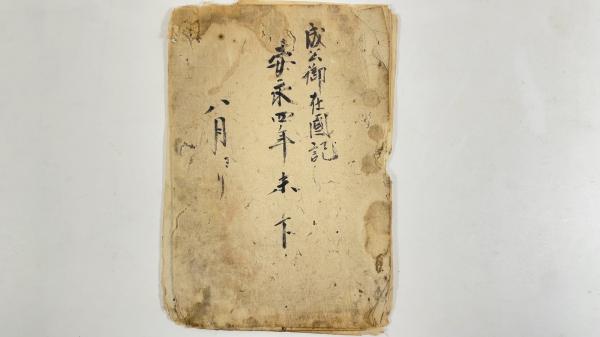 成公御在國記
安永四年未下
八月ヨリ